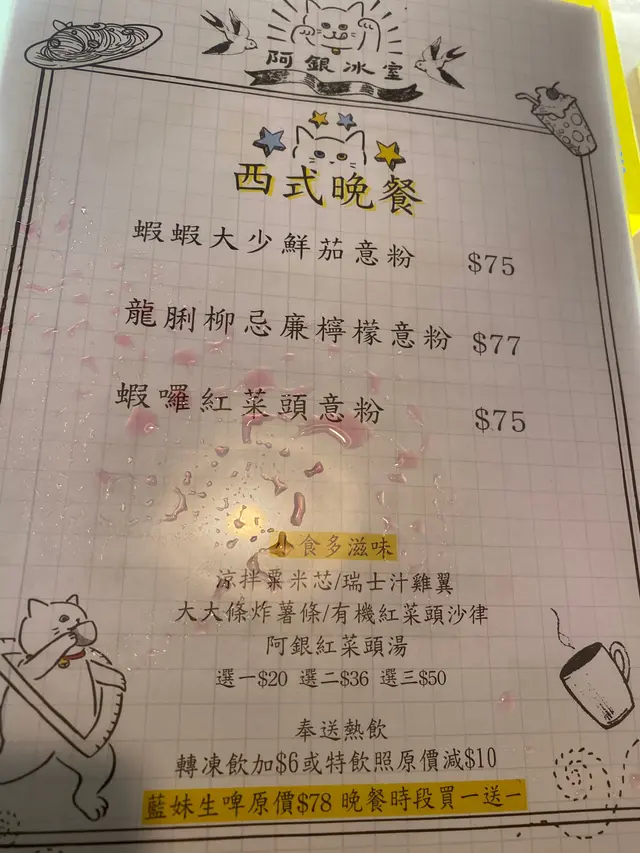 阿銀冰室
西式晚餐
蝦蝦大少鮮茄意粉 $75
龍脷柳忌廉檸檬意粉 $77
蝦囉紅菜頭意粉 $75
小食多滋味
涼拌粟米芯/瑞士汁雞翼
大大條炸薯條/有機紅菜頭沙律
阿銀紅菜頭湯
選一$20 選二$36 選三$50
奉送熱飲
轉凍飲加$6或特飲照原價減$10
藍妹生啤原價$78 晚餐時段買一送一